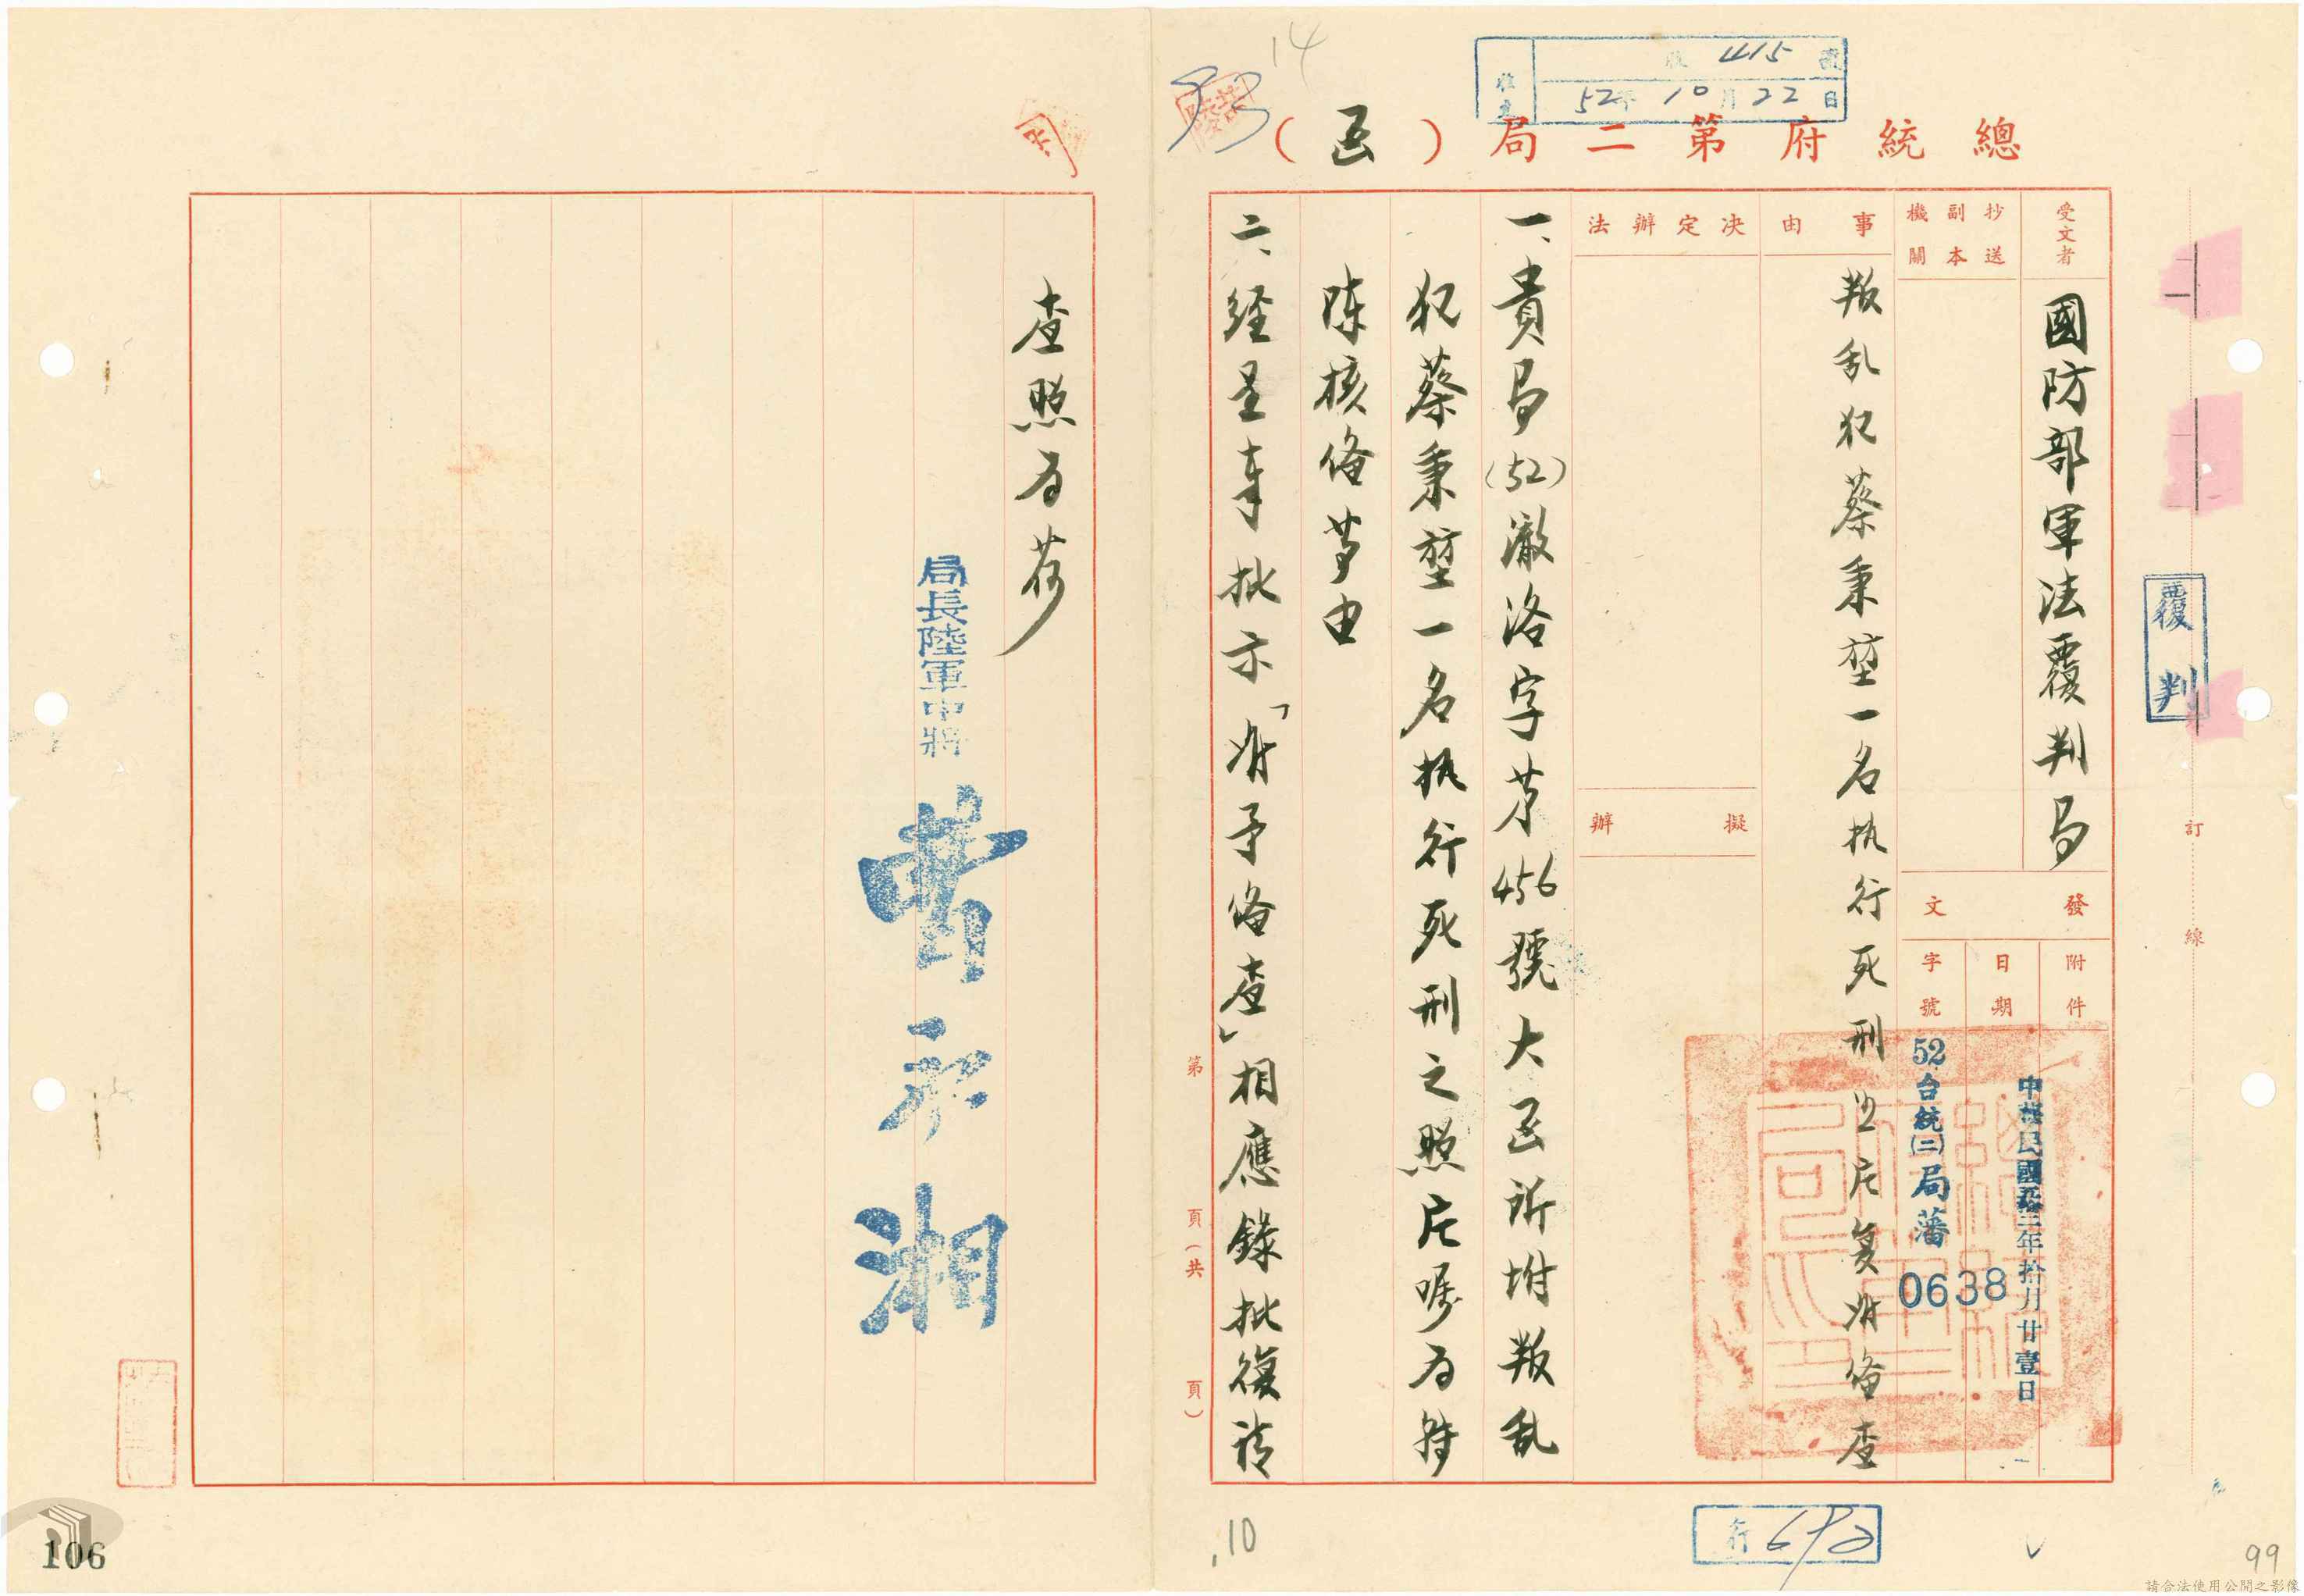 總統府第二局(函)
收 415 號
52年10月22日
14
受文者
國防部軍法覆判局
抄送副本機關
發文
附件
日期
中華民國五十二年拾月廿壹日
字號
52台統(二)局藩
0638
事由
叛乱犯蔡秉堃一名执行死刑照片复准俻查
決定辦法
擬辦
一、貴局(52)澈洛字第456號大函所坿叛乱
犯蔡秉堃一名执行死刑之照片嘱为转
陳核俻等由
二、经呈奉批示「准予俻查」相應錄批復請
查照为荷
局長陸軍中將
覆判
訂
線
第
頁(共
頁)
10
99
106
請合法使用公開之影像